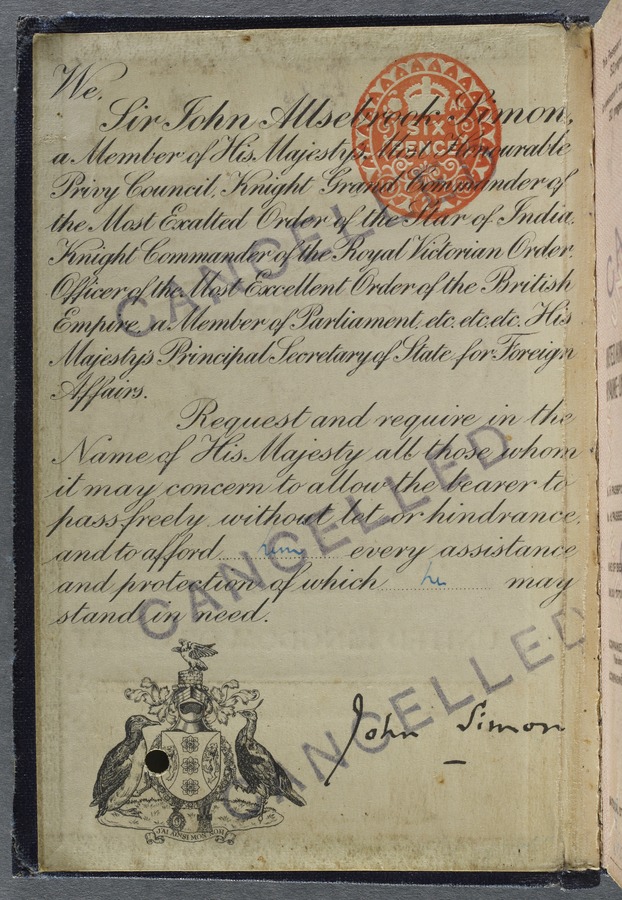 We,
Sir John Allsebrook Simon,
a Member of His Majesty's Most Honourable
Privy Council, Knight Grand Commander of
the Most Exalted Order of the Star of India,
Knight Commander of the Royal Victorian Order,
Officer of the Most Excellent Order of the British
Empire, a Member of Parliament, etc. etc. etc. His
Majesty's Principal Secretary of State for Foreign
Affairs.
Request and require in the
Name of His Majesty all those whom
it may concern to allow the bearer to
pass freely without let or hindrance,
and to afford him every assistance
and protection of which he may
stand in need.
John Simon
J'AI AINSI MON NOM
SIX
PENCE
CANCELLED
CANCELLED
CANCELLED